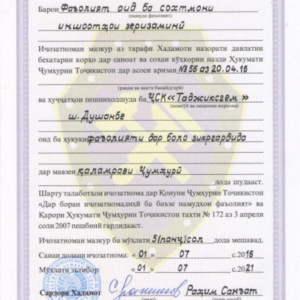 Барои Фаъолият оид ба сохтмони
(намуди фаъолият)
иншоотҳои зеризаминӣ
Иҷозатномаи мазкур аз тарафи Хадамоти назорати давлатии
бехатарии корҳо дар саноат ва соҳаи кӯҳкории назди Ҳукумати
Ҷумҳурии Тоҷикистон дар асоси аризаи №56 аз 20.04.16
ва ҳуҷҷатҳои пешниҳодшуда ба ҶСК «Таджиксгем»
ш. Душанбе
оид ба ҳуқуқи фаъолияти дар боло зикргардида
дар мавзеи қаламрави Ҷумҳурӣ
дода шудааст.
Шарту талаботҳои иҷозатнома дар Қонуни Ҷумҳурии Тоҷикистон
«Дар бораи иҷозатномадиҳӣ ба баъзе намудҳои фаъолият» ва
Қарори Ҳукумати Ҷумҳурии Тоҷикистон таҳти № 172 аз 3 апрели
соли 2007 пешбинӣ гардидааст.
Иҷозатномаи мазкур ба мӯҳлати 5(панҷ)сол дода мешавад.
Санаи додани иҷозатнома: «01» 07 с.2016
Мӯҳлати эътибор: «01» 07 с.2021
Сардори Хадамот Раҳим Санъат